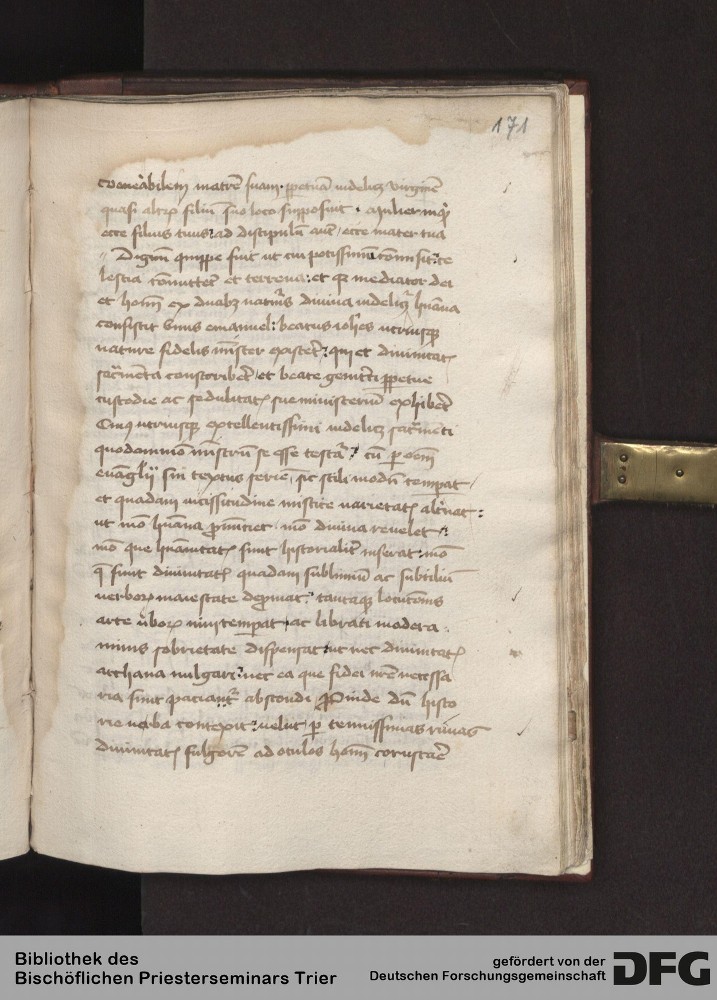 171
venerabilem matrē suam ppetuā videlicz virginē
quasi altrum filiū suo loco supposuit. Mulier inqt
ecce filius tuus: ad discipulū autē / ecce mater tua
Dignū quippe fuit ut cui potissimū comisit: ce
lestia comitteret et terrena: et qz mediator dei
et hoīm ex duabz naturis divina videlicz humana
consistit unus emanuel: beatus iohēs utriusqz
nature fidelis mīster existeret: qui et divinitatis
sacmenta conscriberet / et beate genitrici ppetue
custodie ac sedulitatis sue ministeriū exhiberet
utriusqz excellentissimi videlicz sacmenti
quodammō mīstrū se esse testatur: cū per oēm
evāglii sui textus seriem / sic stili modū temperat /
et quadam vicissitudine mistice varietatis altnat:
ut mō humana pnunciet / mō divina revelet:
mō que humanitatis sunt historialitr inserat: mō
q sunt divinitatis quadam sublimiū ac subtiliū
verborum maiestate depromat: tantaqz locutionis
arte verborum vim temperat / ac librati modera
minis sobrietate dispensat: ut nec divinitatis
archana vulgaret: nec ea que fidei nrē necessa
ria sunt paciantr abscondi Proinde dū histo
rie verba contexit: velut per tenuissimas rimas
divinitatis fulgorē ad oculos hoīm coruscare
Bibliothek des
Bischöflichen Priesterseminars Trier
gefördert von der
Deutschen Forschungsgemeinschaft
DFG